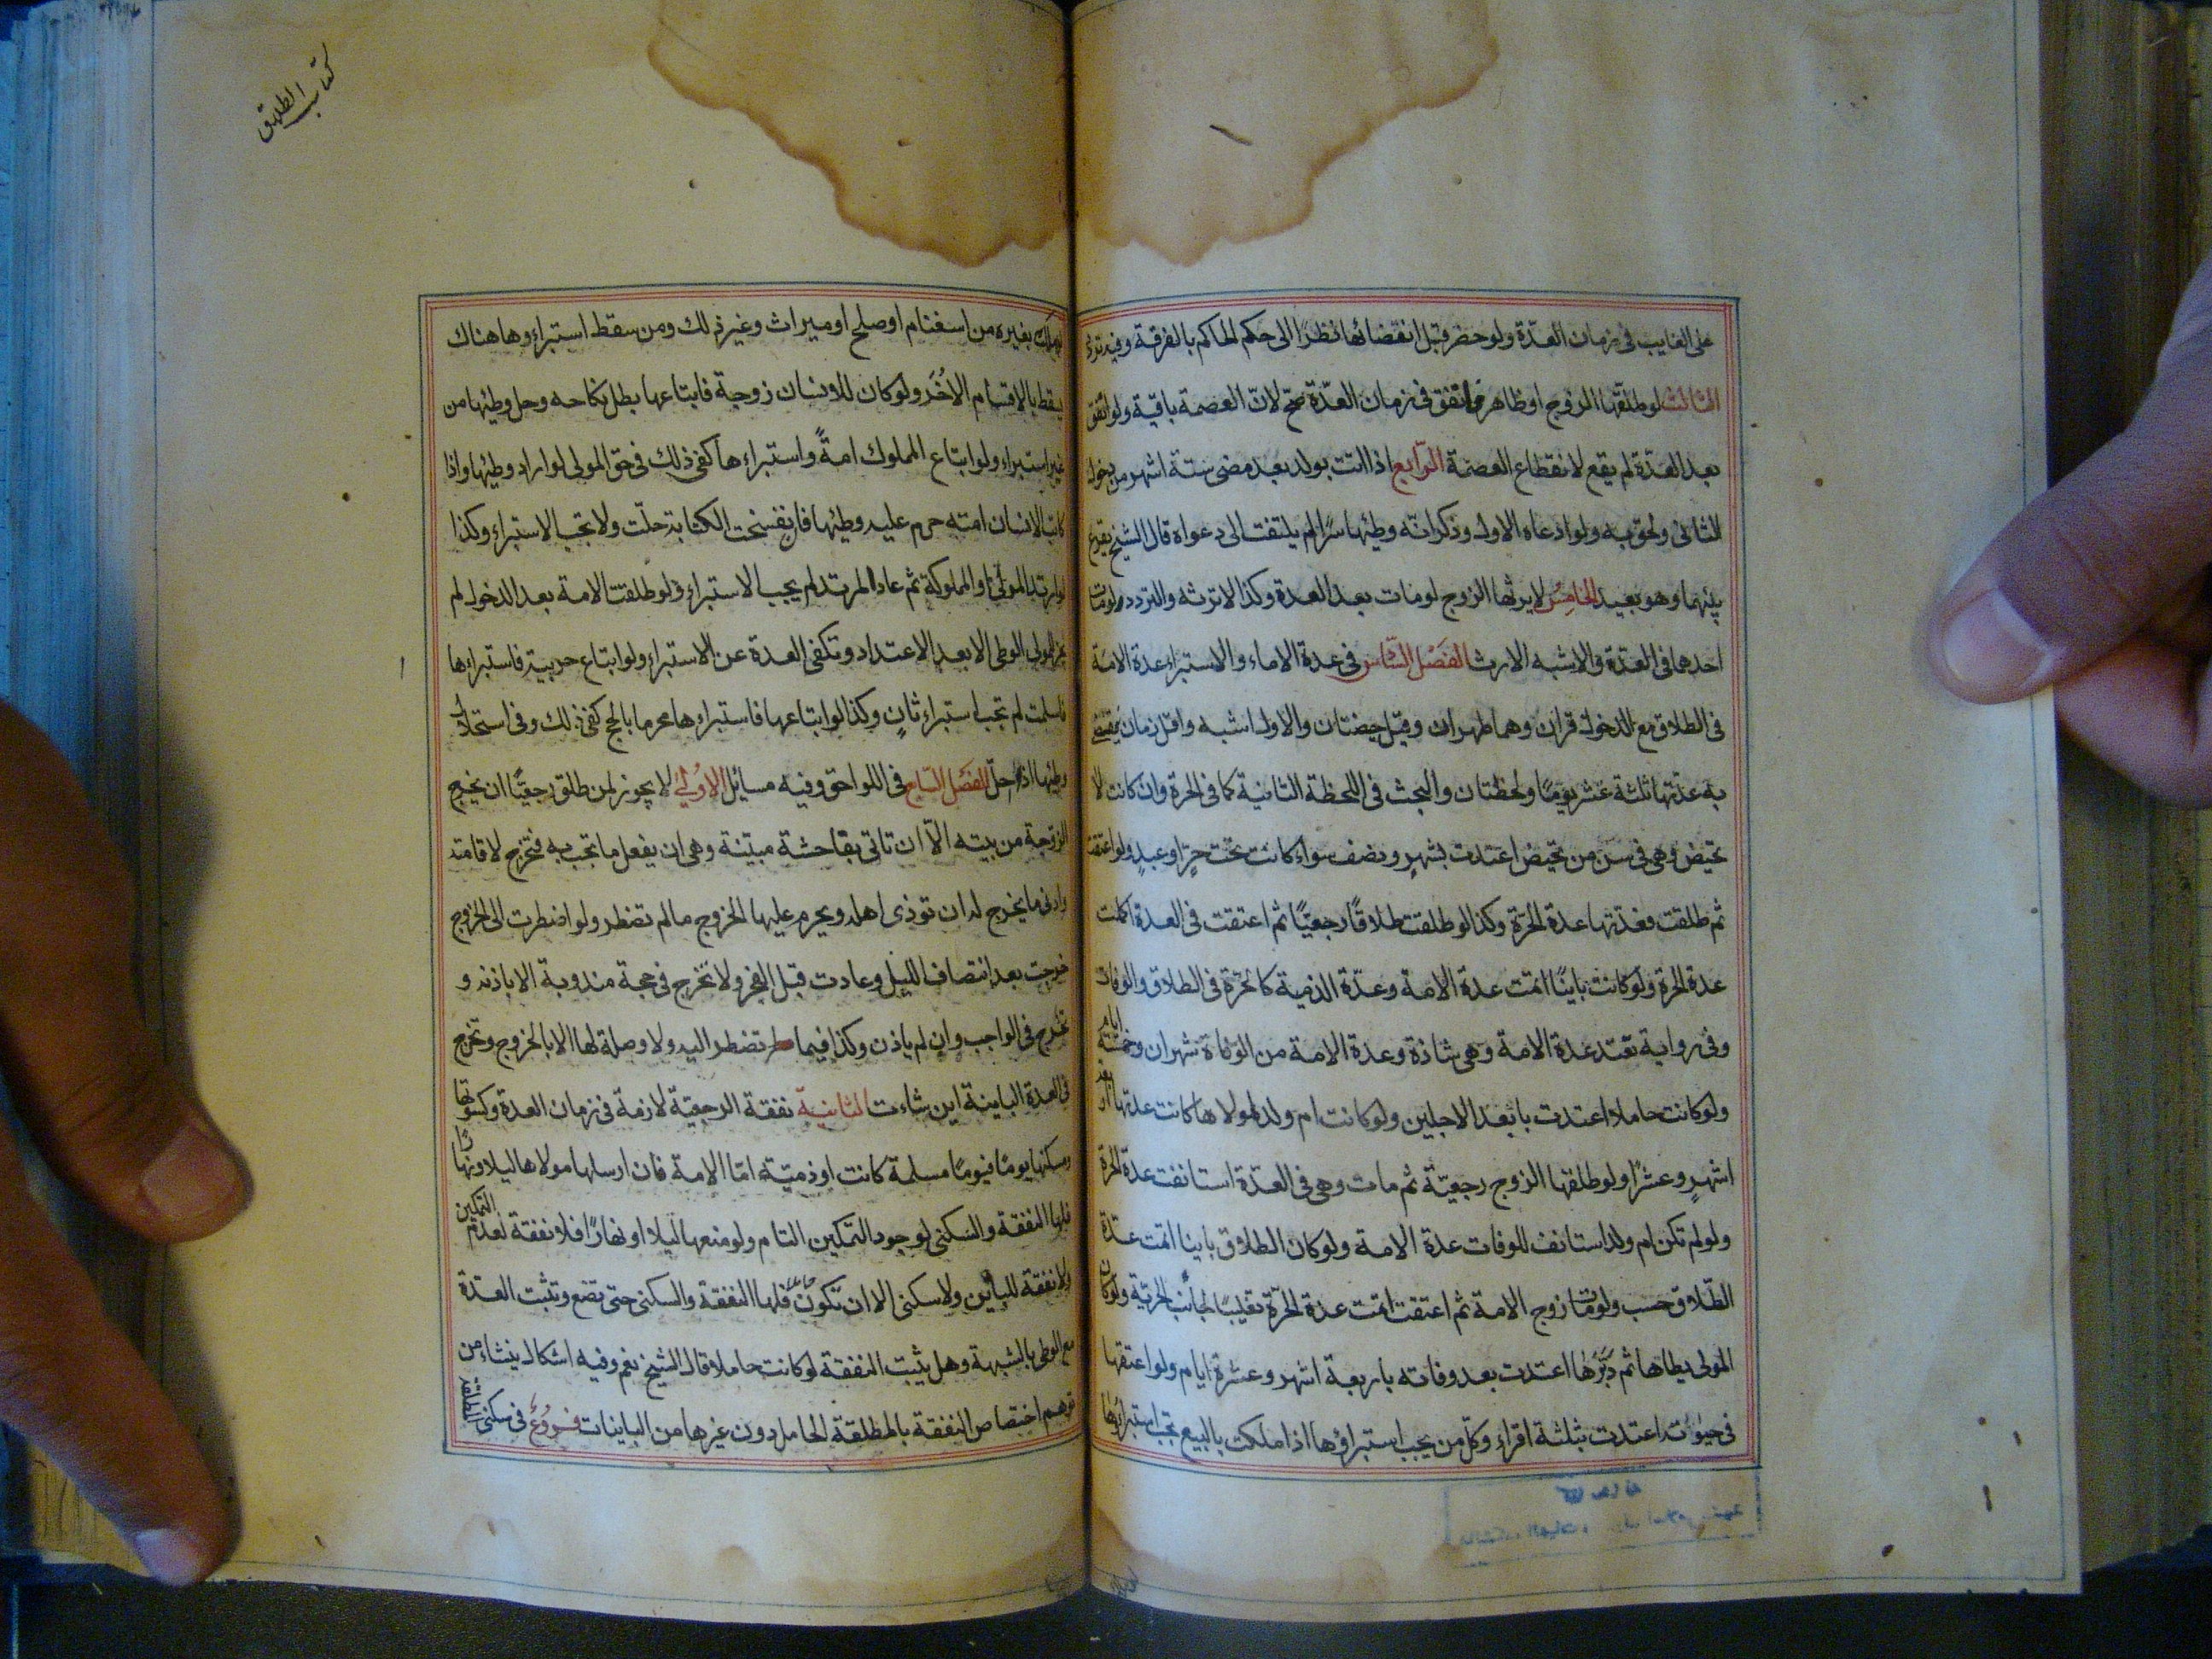 على الغايب فى زمان العدّة ولو حضر قبل انقضائها نظرًا الى حكم الحاكم بالفرقة وفيه تردد
الثالث لو طلّقها الزوج او ظاهر واتفق فى زمان العدّة صحّ لانّ العصمة باقية ولو اتّفق
بعد العدّة لم يقع لانقطاع العصمة الرّابع اذا اتت بولد بعد مضى ستة اشهر من دخول
الثانى ولحق به ولو ادعاه الاول وذكر انّه وطيها سرًّا لم يلتفت الى دعواه قال الشيخ يقرع
بينهما وهو بعيد الخامِسُ لا يرثها الزوج لو مات بعد العدة وكذا لا ترثه والتردد لو مات
احدهما فى العدّة والاشبه الارث الفَصْل السّادس فى عدة الاماء والاستبراء عدة الامَة
فى الطلاق مع الدخول قرآن وهما طهران وقيل حيضتان والاول اشبه واقل زمان ينقضى
به عدّتها ثلثة عشر يومًا ولحظتان والبحث فى اللحظة الثانية كما فى الحرة وان كانت لا
تحيض وهى فى سنّ من تحيض اعتدت بشهرٍ ونصف سواء كانت تحت حرٍّ او عبدٍ ولو اعتقت
ثم طلقت فعدّتها عدة الحرّة وكذا لو طلقت طلاقًا رجعيًّا ثم اعتقت فى العدة اكملت
عدة الحرة ولو كانت باينًا اتمت عدة الامة وعدّة الذمية كالحرّة فى الطلاق والوفات
وفى رواية تعتد عدة الامة وهى شاذة وعدة الامة من الوفاة شهران وخمسة ايام
ولو كانت حاملا اعتدت بابعد الاجلين ولو كانت ام ولد لمولاها كانت عدتها اربعة
اشهرٍ وعشرًا ولو طلقها الزوج رجعيّة ثم مات وهى فى العدّة استانفت عدة الحرة
ولو لم تكن ام ولد استانف للوفات عدة الامة ولو كان الطلاق باينا اتمت عدّة
الطّلاق حسب ولو مات زوج الامة ثم اعتقت اتمت عدة الحرّة تغليبًا لجانب الحريّة ولو كان
المولى يطاها ثم دبّرها اعتدت بعد وفاته باربعة اشهر وعشرة ايام ولو اعتقها
فى حيوٰته اعتدت بثلثة اقراء وكلّ من يجب استبراؤها اذا ملكت بالبيع يجب استبراؤها
كتاب الطلاق
لو ملك بغيره من استغنام او صلح او ميراث وغير ذلك ومن سقط استبراؤها هناك
يسقط بالاقسام الاُخَر ولو كان للانسان زوجة فابتاعها بطل نكاحه وحل وطيها من
غير استبراء ولو ابتاع المملوك امةً واستبراءها كفى ذلك فى حق المولى لو اراد وطيها واذا
كاتب الانسان امته حرم عليه وطيها فان انفسخت الكتابة حلّت ولا يجب الاستبراء وكذا
لو ارتد المولى او المملوكة ثم عاد المرتد لم يجب الاستبراء ولو طلقت الامة بعد الدخول لم
يجز للمولى الوطى الا بعد الاعتداد وتكفى العدة عن الاستبراء ولو ابتاع حربية فاستبراها
فاسلمت لم تجب استبراء ثانٍ وكذا لو ابتاعها فاستبراءها محرما بالحج كفى ذلك وفى استحلال
وطيها اذا احلّ الفَصْل السّابع فى اللواحق وفيه مسايل الاوُلىٰ لا يجوز لمن طلق رجعيًّا ان يخرج
الزوجة من بيته الّا ان تاتى بفاحشة مبيّنة وهى ان يفعل ما يجب به فتخرج لاقامته
وادنى ما يخرج له ان توذى اهله ويحرم عليها الخروج ما لم تضطر ولو اضطرت الى الخروج
خرجت بعد انتصاف الليل وعادت قبل الفجر ولا تخرج فى حجة مندوبة الا باذنه و
تخرج فى الواجب وان لم ياذن وكذا فيما تضطر اليه ولا وصلة لها الا بالخروج وتخرج
فى العدة الباينة اين شاءت الثانية نفقة الرجعيّة لازمة فى زمان العدة وكسوتها
ومسكنها يومًا فيومًا مسلمة كانت او ذميّة امّا الامة فان ارسلها مولاها ليلا ونهارًا
فلها النفقة والسكنى لوجود التمكين التام ولو منعها ليلا او نهارًا فلا نفقة لعدم التمكين
ولا نفقة للباين ولا سكنى الا ان تكون حاملًا فلها النفقة والسكنى حتى تضع وتثبت العدة
مع الوطى بالشبهة وهل يثبت النفقة لو كانت حاملا قال الشيخ نعم وفيه اشكال ينشاء من
توهم اختصاص النفقة بالمطلقة الحامل دون غيرها من الباينات فروُعٌ فى سكنى المطلقة